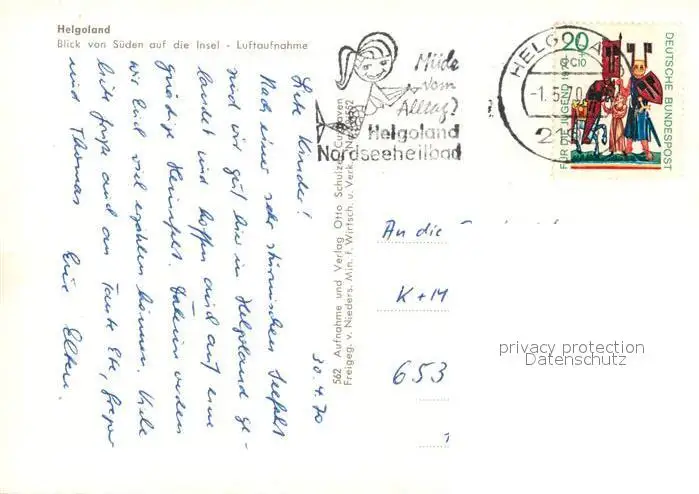 Helgoland
Blick von Süden auf die Insel - Luftaufnahme
30.4.70
Liebe Kinder!
Nach einer sehr stürmischen Seefahrt
sind wir gut hier in Helgoland ge-
landet und hoffen auf eine
gnädige Heimfahrt. Daheim werden
wir Euch viel erzählen können. Viele
liebe Grüße auch an Tante
und Thomas Eure Eltern.
562 Aufnahme und Verlag Otto Schulze, Cuxhaven
Freigeg. v. Nieders. Min. f. Wirtsch. u. Verk.
Müde
vom
Alltag?
Helgoland
Nordseeheilbad
HELGOLAND
-1.5.70
20+10
FÜR DIE JUGEND 1970
DEUTSCHE BUNDESPOST
An die
K+M
653
privacy protection
Datenschutz